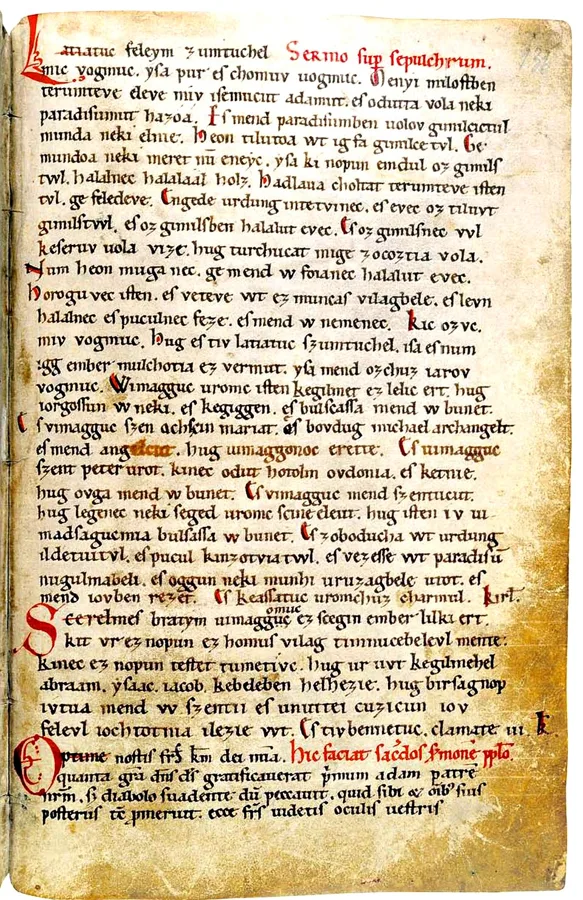 Latiatuc feleym zumtuchel Sermo sup sepulchrum.
mic vogmuc. yſa pur eſ chomuv uogmuc. Menyi miloſtben
terumteve eleve miv iſemucut adamut. eſ odutta vola neki
paradiſumut hazoa. Eſ mend paradiſumben uolov gimilcictul
munda neki elnie. Heon tilutoa wt ig fa gimilce tvl. Ge
mundoa neki meret nū eneyc. yſa ki nopun emdul oz gimilſ
twl. halalnec halalaal holz. Hadlaua choltat terumteve iſten
tvl. ge feledeve. Engede urdung intetvinec. eſ evec oz tiluvt
gimilſtvvl. eſ oz gimilſben halalut evec. Eſ oz gimilſnec vvl
keſeruv uola vize. hug turchucat mige zocoztia vola.
Num heon muga nec. ge mend w foianec halalut evec.
Horogu vec iſten. eſ veteve wt ez muncaſ vilagbele. eſ levn
halalnec eſ puculnec feze. eſ mend w nemenec. Kic ozvc.
miv vogmuc. Hug eſ tiv latiatuc ſzumtuchel. iſa eſ num
igg ember mulchotia ez vermut. yſa mend ozchuz iarov
vogmuc. Wimagguc uromc iſten kegilmet ez lelic ert. hug
iorgoſſun w neki. eſ kegiggen. eſ bulſaſſa mend w bunet.
Eſ vimagguc ſzen achſcin mariat. eſ bovdug michael archangelt.
eſ mend angelcut. hug uimaggonoc erette. Eſ uimagguc
ſzent peter urot. kinec odut hotolm ovdonia. eſ ketnie.
hug ovga mend w bunet. Eſ vimagguc mend ſzentucut.
hug legenec neki ſeged uromc ſcine eleut. hug iſten iv ui
madſagucmia bulſaſſa w bunet. Eſ zoboducha wt urdung
ildetuitvl. eſ pucul kinzotviatwl. eſ vezeſſe wt paradiſū
nugulmabeli. eſ oggun neki munhi uruzagbele utot. eſ
mend iovben rezet. Eſ keaſſatuc uromchuz charmul. kirł.
Scerelmeſ bratym uimagguc omuc ez ſcegin ember lilki ert.
kit vr ez nopun ez homuſ vilag timnucebelevl mente.
kinec ez nopun teſtet tumetivc. hug ur uvt kegilmehel
abraam. yſaac. iacob. kebeleben helhezie. hug birſagnop
ivtua mend w ſzentii eſ unuttei cuzicun iov
felevl iochtotnia ilezie wt. Eſ tivbennetuc. clamate iii. K
Optime noſtiſ frſ km dei mia. hic faciat sacdos ſmonē pplo
quanta grā dns ds gratificauerat pmum adam patrē
nrm. ſꝫ diabolo ſuadente dū peccauit. quid ſibi et oībꝫ ſuiſ
poſteriſ tc pmeruit. ecce frſ videtiſ oculiſ ueſtriſ